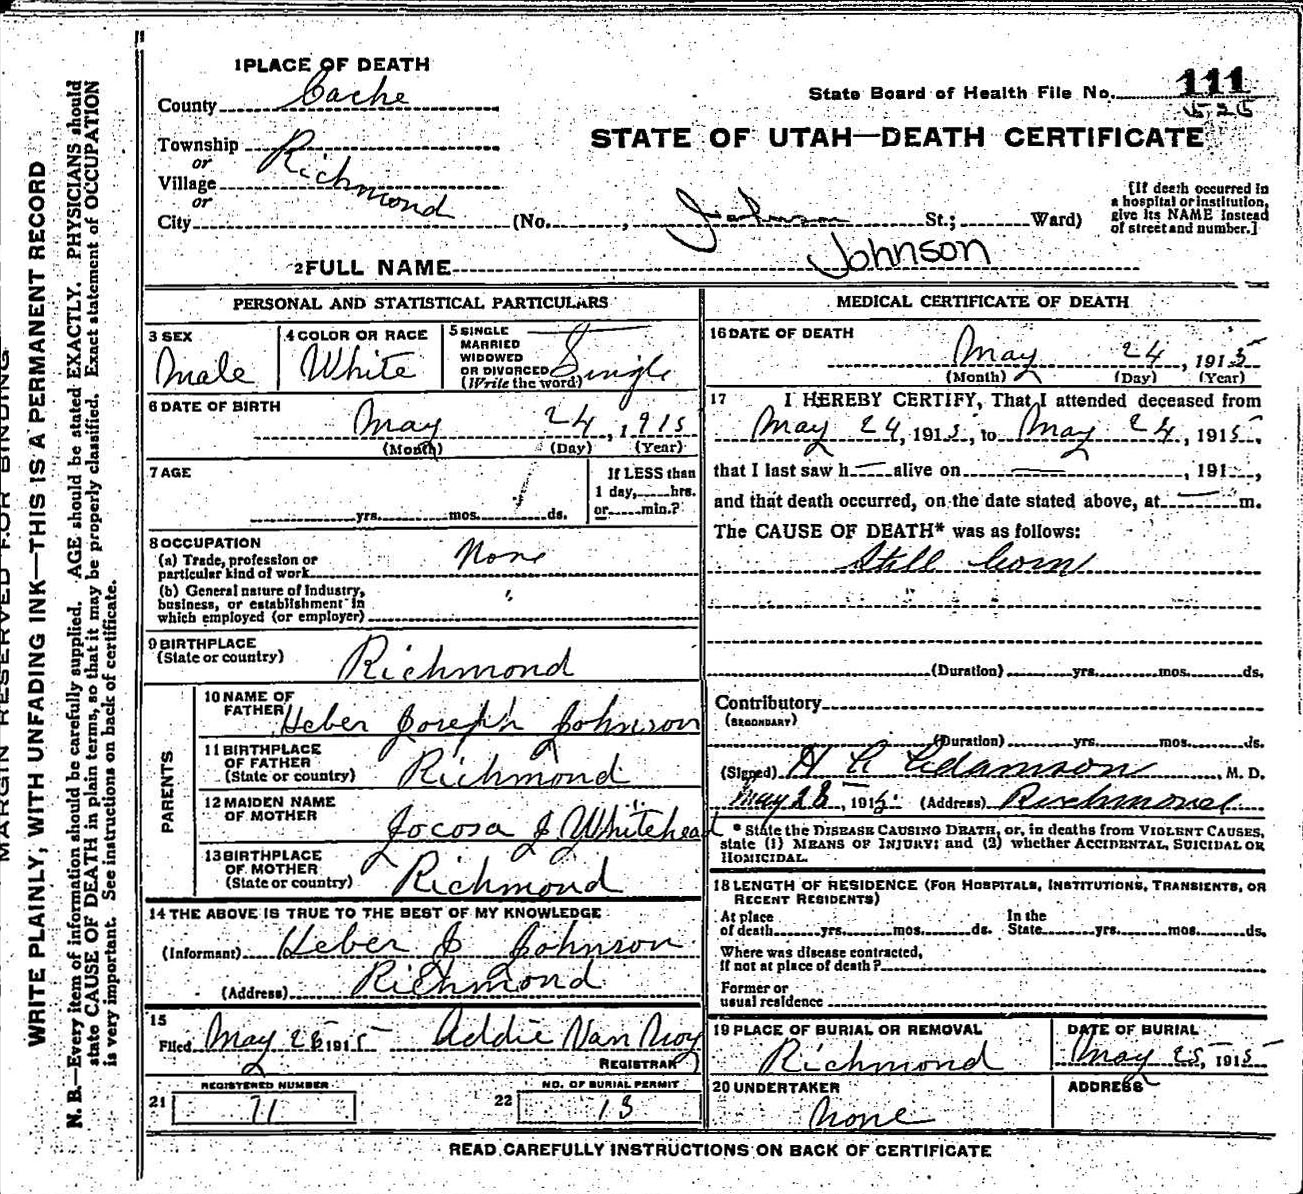 1 PLACE OF DEATH
County Cache
State Board of Health File No. 111
525
STATE OF UTAH—DEATH CERTIFICATE
Township
or
Village Richmond
or
City (No. , Johnson St.; Ward)
[If death occurred in
a hospital or institution,
give its NAME instead
of street and number.]
2 FULL NAME Johnson
PERSONAL AND STATISTICAL PARTICULARS
3 SEX
Male
4 COLOR OR RACE
White
5 SINGLE
MARRIED
WIDOWED
OR DIVORCED
(Write the word)
Single
6 DATE OF BIRTH
May 24, 1915
(Month) (Day) (Year)
7 AGE
yrs. mos. ds.
If LESS than
1 day, hrs.
or min.?
8 OCCUPATION
(a) Trade, profession or
particular kind of work None
(b) General nature of Industry,
business, or establishment in
which employed (or employer)
9 BIRTHPLACE
(State or country)
Richmond
PARENTS
10 NAME OF
FATHER Heber Joseph Johnson
11 BIRTHPLACE
OF FATHER
(State or country) Richmond
12 MAIDEN NAME
OF MOTHER Jocosa J Whitehead
13 BIRTHPLACE
OF MOTHER
(State or country) Richmond
14 THE ABOVE IS TRUE TO THE BEST OF MY KNOWLEDGE
(Informant) Heber J Johnson
(Address) Richmond
15
Filed May 28 1915 Addie Van Noy
REGISTRAR
REGISTERED NUMBER
21 71
NO. OF BURIAL PERMIT
22 13
MEDICAL CERTIFICATE OF DEATH
16 DATE OF DEATH
May 24, 1915
(Month) (Day) (Year)
17 I HEREBY CERTIFY, That I attended deceased from
May 24, 1915, to May 24, 1915,
that I last saw h— alive on — , 191 ,
and that death occurred, on the date stated above, at — m.
The CAUSE OF DEATH* was as follows:
Still born
(Duration) yrs. mos. ds.
Contributory
(SECONDARY)
(Duration) yrs. mos. ds.
(Signed) Adamson M. D.
May 28, 1915 (Address) Richmond
* State the DISEASE CAUSING DEATH, or, in deaths from VIOLENT CAUSES,
state (1) MEANS OF INJURY; and (2) whether ACCIDENTAL, SUICIDAL OR
HOMICIDAL.
18 LENGTH OF RESIDENCE (FOR HOSPITALS, INSTITUTIONS, TRANSIENTS, OR
RECENT RESIDENTS)
At place
of death yrs. mos. ds.
In the
State yrs. mos. ds.
Where was disease contracted,
if not at place of death?
Former or
usual residence
19 PLACE OF BURIAL OR REMOVAL
Richmond
DATE OF BURIAL
May 25, 1915
20 UNDERTAKER
None
ADDRESS
READ CAREFULLY INSTRUCTIONS ON BACK OF CERTIFICATE
MARGIN RESERVED FOR BINDING
WRITE PLAINLY, WITH UNFADING INK—THIS IS A PERMANENT RECORD
N. B.—Every item of information should be carefully supplied. AGE should be stated EXACTLY. PHYSICIANS should
state CAUSE OF DEATH in plain terms, so that it may be properly classified. Exact statement of OCCUPATION
is very important. See instructions on back of certificate.